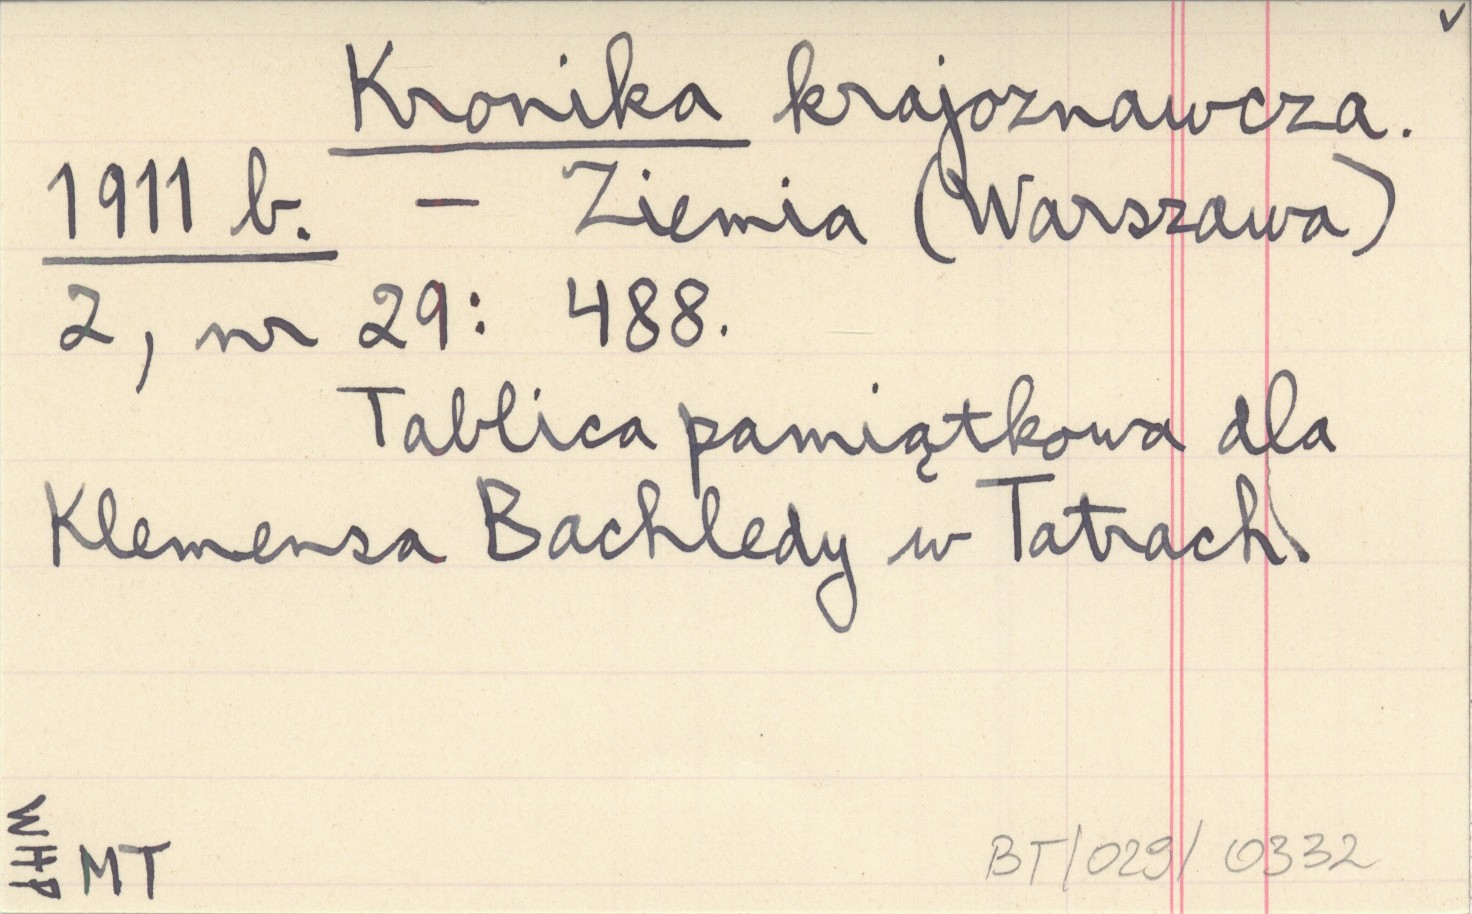 ✓
Kronika krajoznawcza.
1911 b. – Ziemia (Warszawa)
2, nr 29: 488.
Tablica pamiątkowa dla
Klemensa Bachledy w Tatrach.
WHP
MT
BT/029/0332